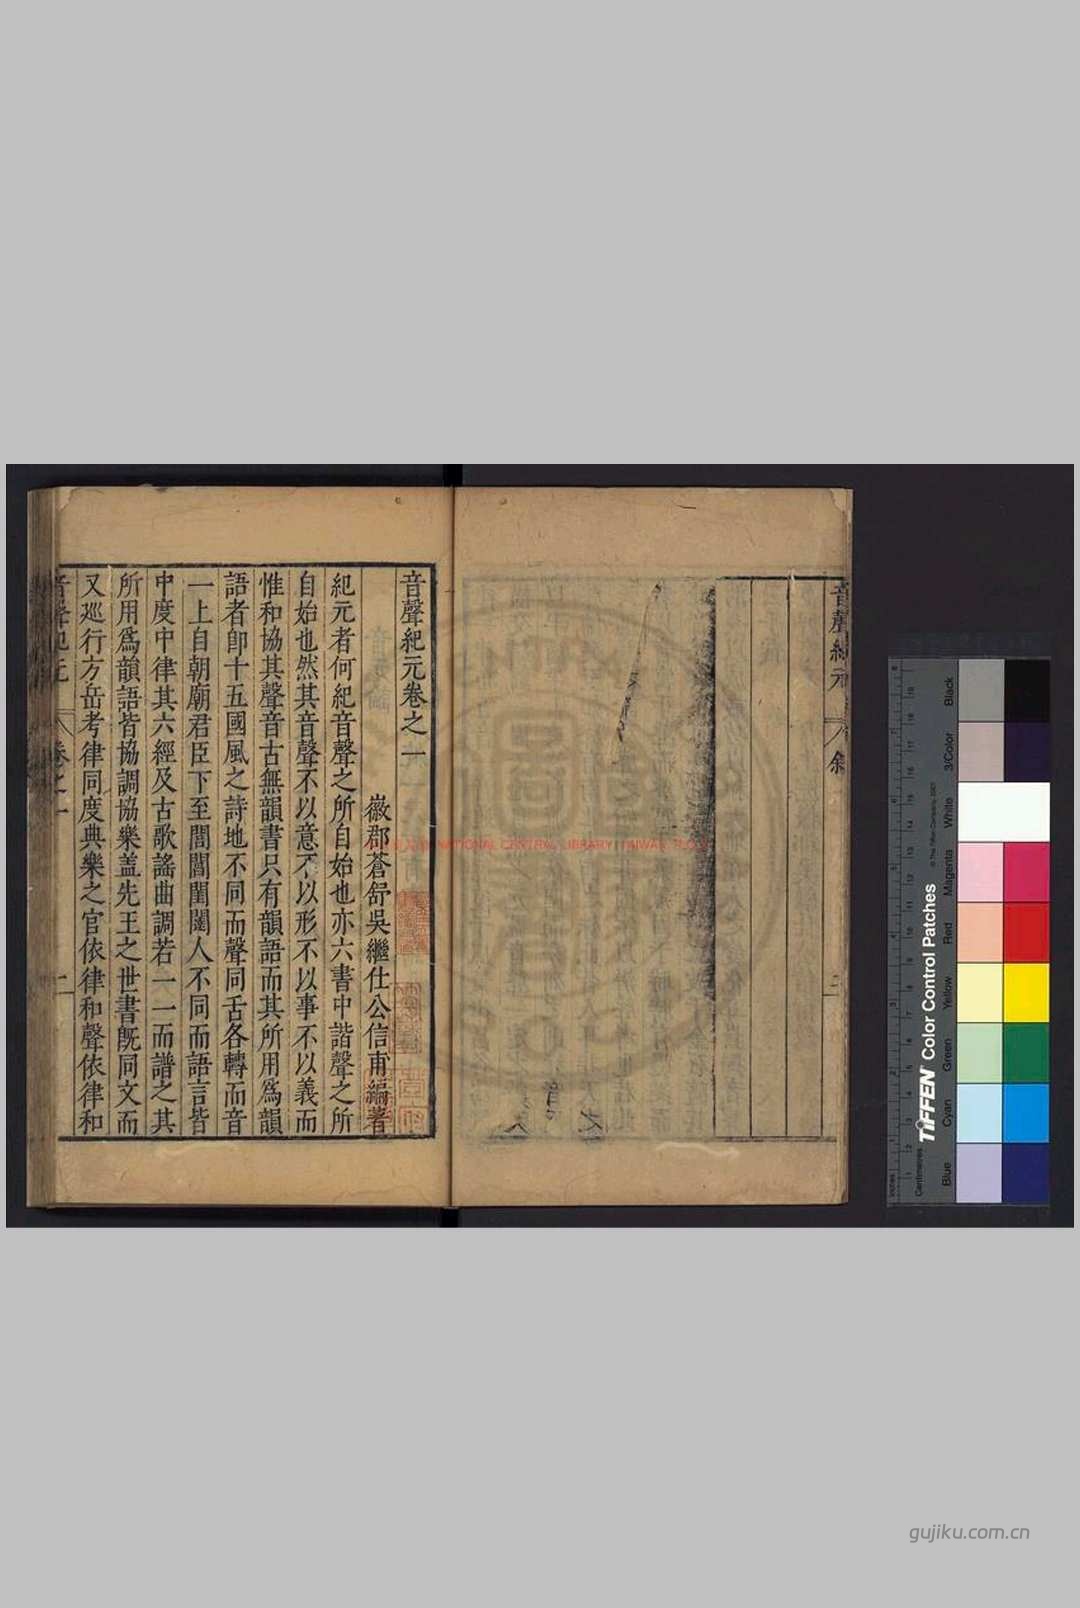 音聲紀元
叙
三
音聲紀元卷之一
徽郡蒼舒吳繼仕公信甫編著
紀元者何紀音聲之所自始也亦六書中諧聲之所
自始也然其音聲不以意不以形不以事不以義而
惟和協其聲音古無韻書只有韻語而其所用爲韻
語者卽十五國風之詩地不同而聲同舌各轉而音
一上自朝廟君臣下至閭閻閨闥人不同而語言皆
中度中律其六經及古歌謠曲調若一一而譜之其
所用爲韻語皆協調協樂盖先王之世書旣同文而
又廵行方岳考律同度典樂之官依律和聲依律和
音聲紀元
卷之一
NATIONAL CENTRAL LIBRARY, TAIWAN, R.O.C
TIFFEN Color Control Patches
© The Tiffen Company, 2007
Centimetres
Inches
Blue
Cyan
Green
Yellow
Red
Magenta
White
3/Color
Black
gujiku.com.cn